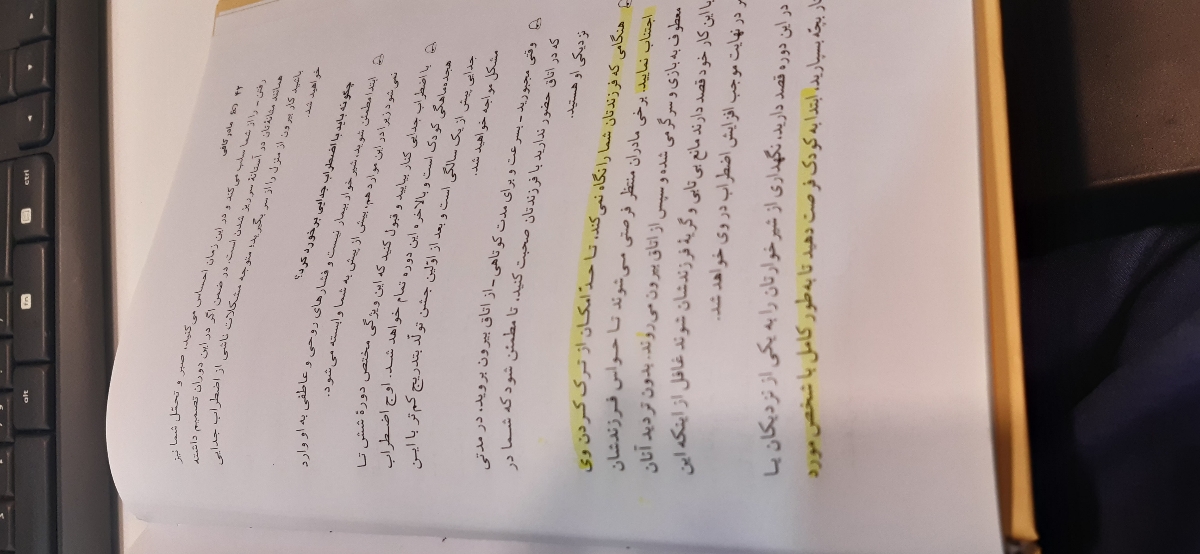 ۴۴ مادر کافی
رفتن ـ را از شما سلب می‌کند و در این زمان احساس می‌کنید، صبر و تحمّل شما نیز
همانند مثانه‌تان در آستانهٔ سر ریز شدن است. در ضمن اگر در این دوران تصمیم داشته
باشید کار بیرون از منزل را از سر بگیرید، متوجه مشکلات ناشی از اضطراب جدایی
خواهید شد.
چگونه باید با اضطراب جدایی برخورد کرد؟
ابتدا مطمئن شوید، شیرخوار بیمار نیست و فشارهای روحی و عاطفی به او وارد
نمی‌شود زیرا در این موارد هم، بیش از پیش به شما وابسته می‌شود.
با اضطراب جدایی کنار بیایید و قبول کنید که این ویژگی مختص دورهٔ شش تا
هجده‌ماهگی کودک است و بالاخره این دوره تمام خواهد شد. اوج اضطراب
جدایی پیش از یک سالگی است و بعد از اوّلین جشن تولّد بتدریج کم‌تر با این
مشکل مواجه خواهید شد.
وقتی مجبورید ـ بسرعت و برای مدت کوتاهی ـ از اتاق بیرون بروید، در مدتی
که در اتاق حضور ندارید با فرزندتان صحبت کنید، تا مطمئن شود که شما در
نزدیکی او هستید.
هنگامی که فرزندتان شما را نگاه نمی‌کند، تا حدّ امکان از ترک کردن وی
اجتناب نمایید. برخی مادران منتظر فرصتی می‌شوند تا حواس فرزندشان
معطوف به بازی و سرگرمی شده و سپس از اتاق بیرون می‌روند. بدون تردید آنان
با این کار خود قصد دارند مانع بی‌تابی و گریهٔ فرزندشان شوند غافل از اینکه این
در نهایت موجب افزایش اضطراب در وی خواهد شد.
در این دوره قصد دارید، نگهداری از شیرخوارتان را به یکی از نزدیکان یا
بچّه بسپارید، ابتدا به کودک فرصت دهید تا به‌طور کامل با شخص مورد